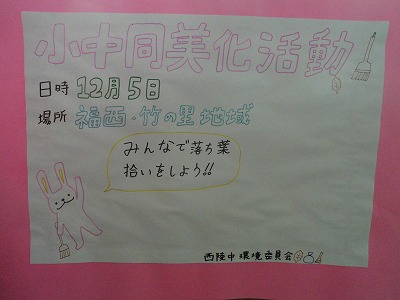 小中同美化活動
日時 12月5日
場所 福西・竹の里地域
みんなで落ち葉
拾いをしよう!!
西陵中環境委員会